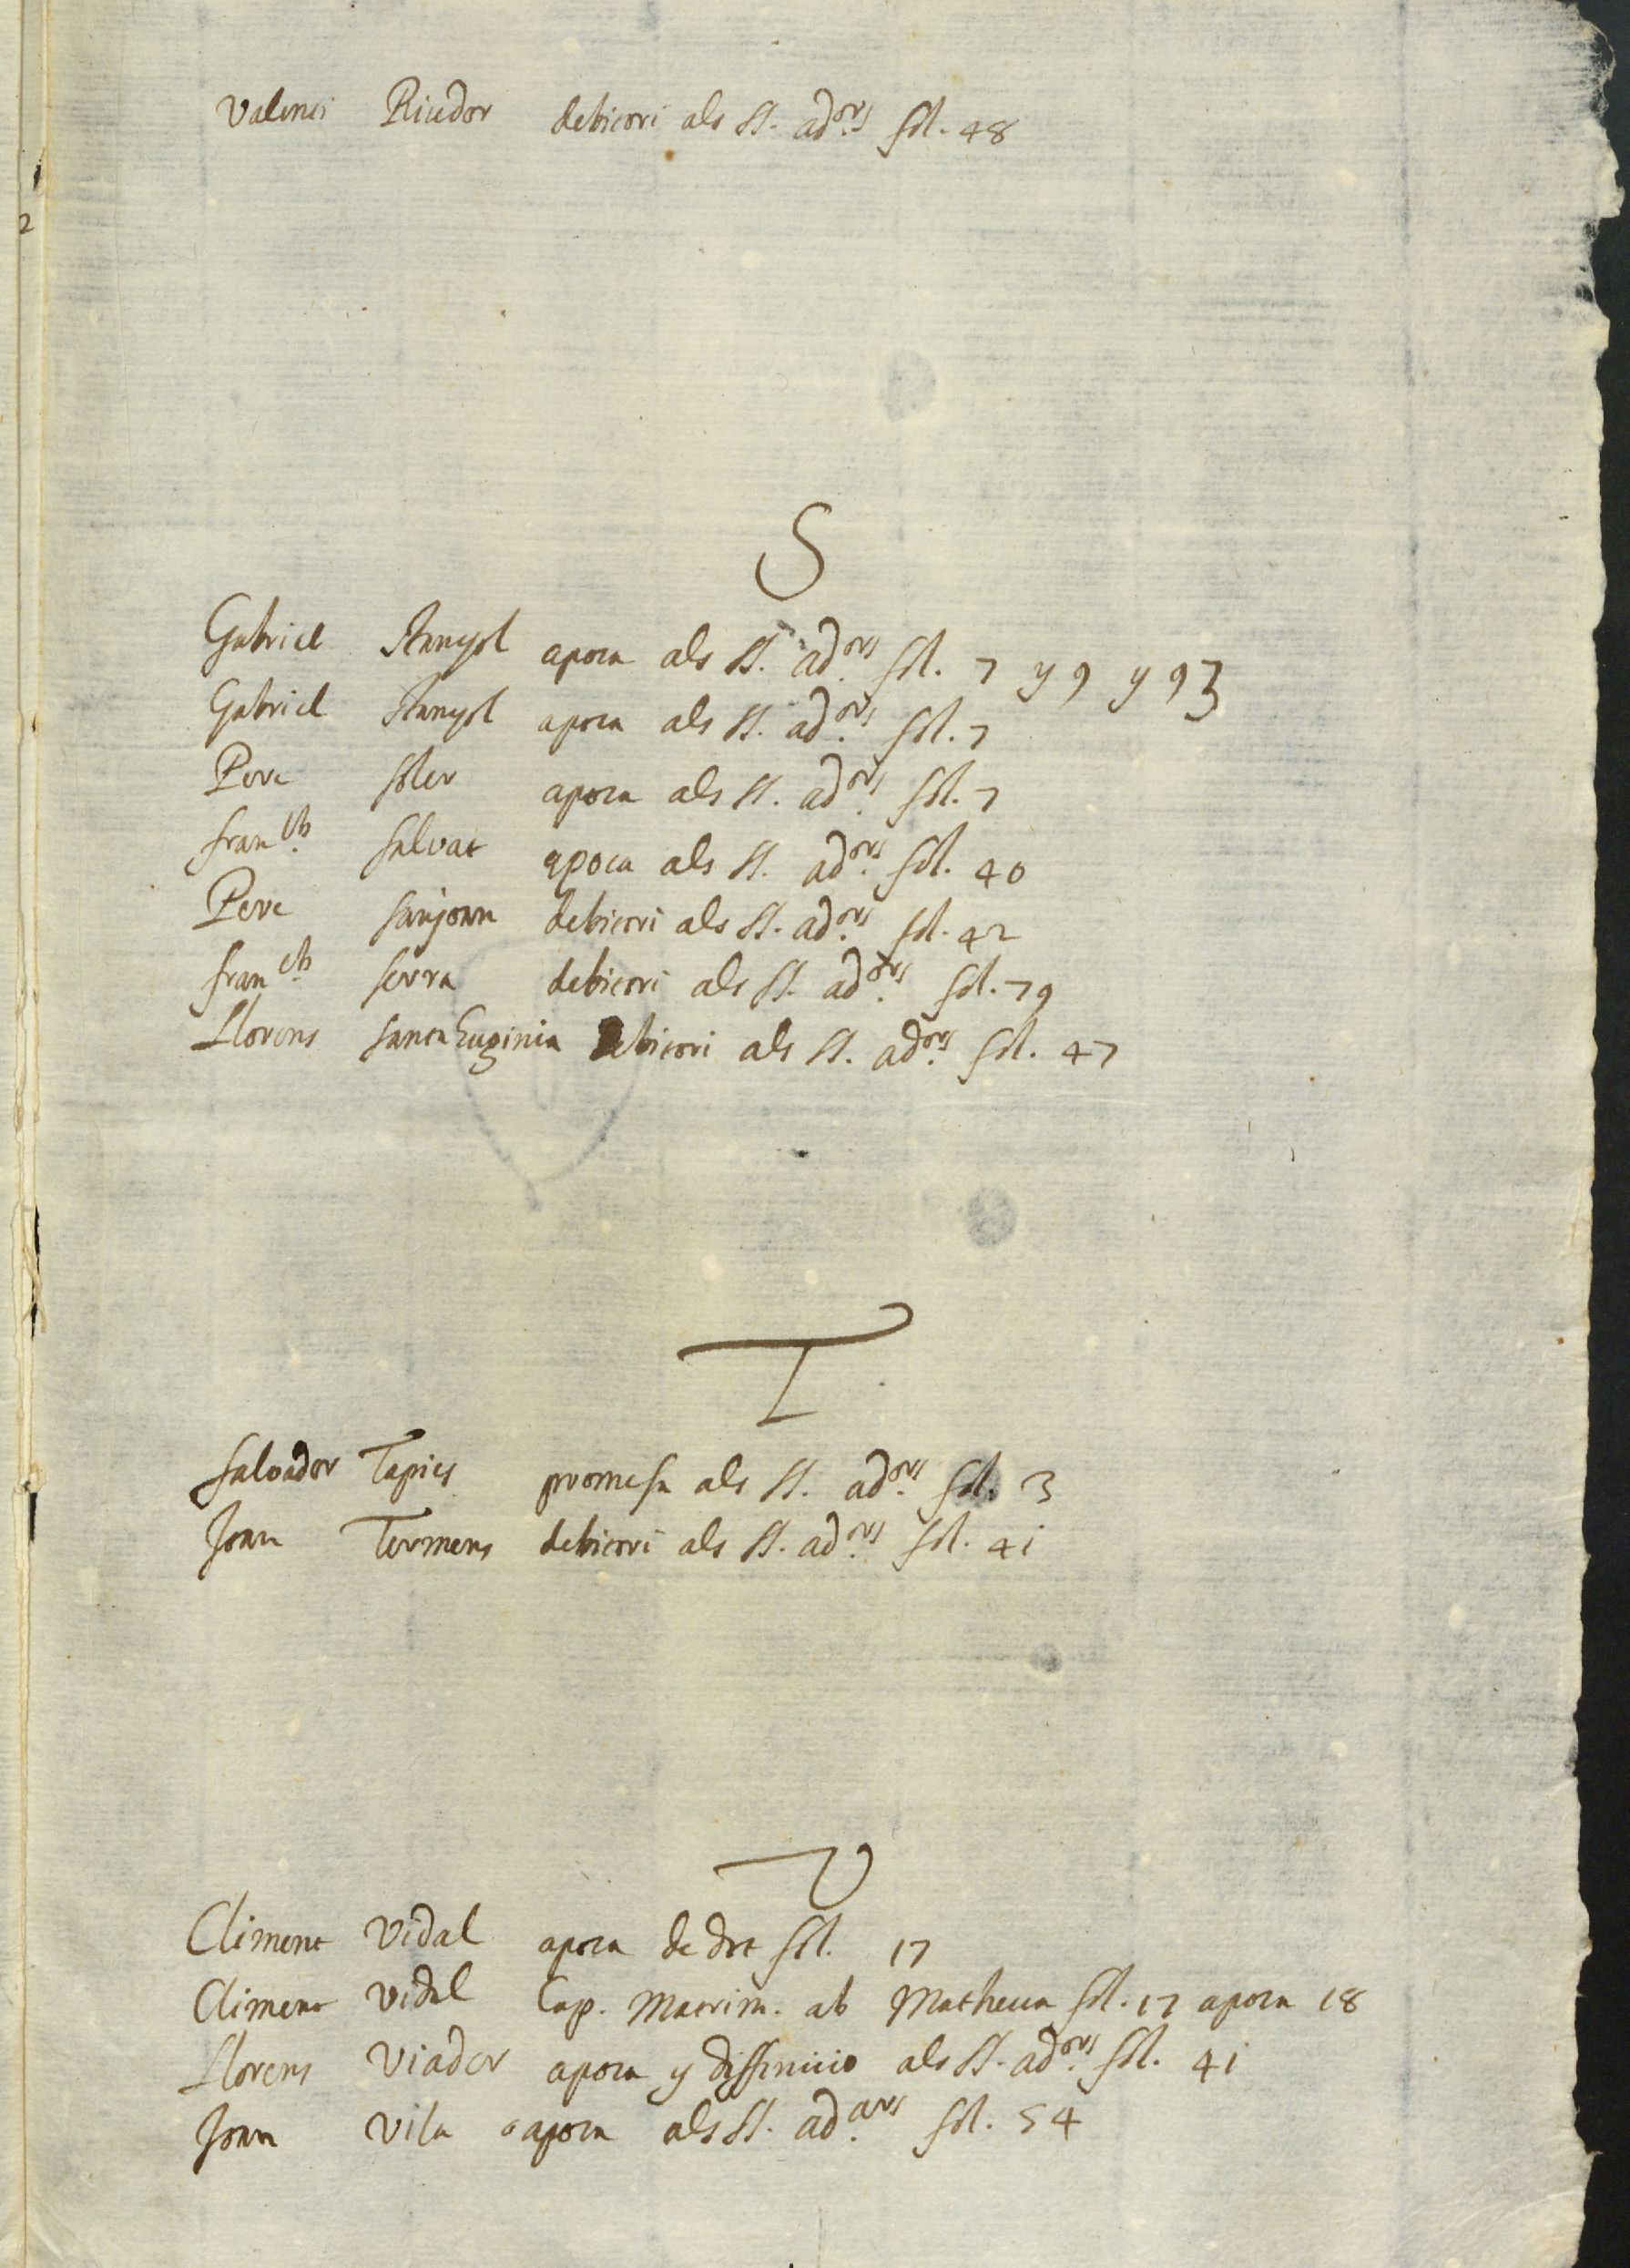 Valenti Riudor debitori als SS. ad.ors fol. 48
2
S
Gabriel Stanyol apoca als SS. ad.ors fol. 7 y 9 y 93
Gabriel Stanyol apoca als SS. ad.ors fol. 7
Pere soler apoca als SS. ad.ors fol. 7
fran.ch salvat apoca als SS. ad.ors fol. 40
Pere sanjoan debitori als SS. ad.ors fol. 42
fran.ch serra debitori als SS. ad.ors fol. 79
Llorens santa Euginia debitori als SS. ad.ors fol. 47
T
salvador Tapies promesa als SS. ad.ors fol. 3
Joan Termens debitori als SS. ad.ors fol. 41
V
Climent Vidal apoca de dot fol. 17
Climent Vidal Cap. Matrim. ab Matheua fol. 17 apoca 18
Llorens Viader apoca y diffinicio als SS. ad.ors fol. 41
Joan Vila apoca als SS. ad.ors fol. 54